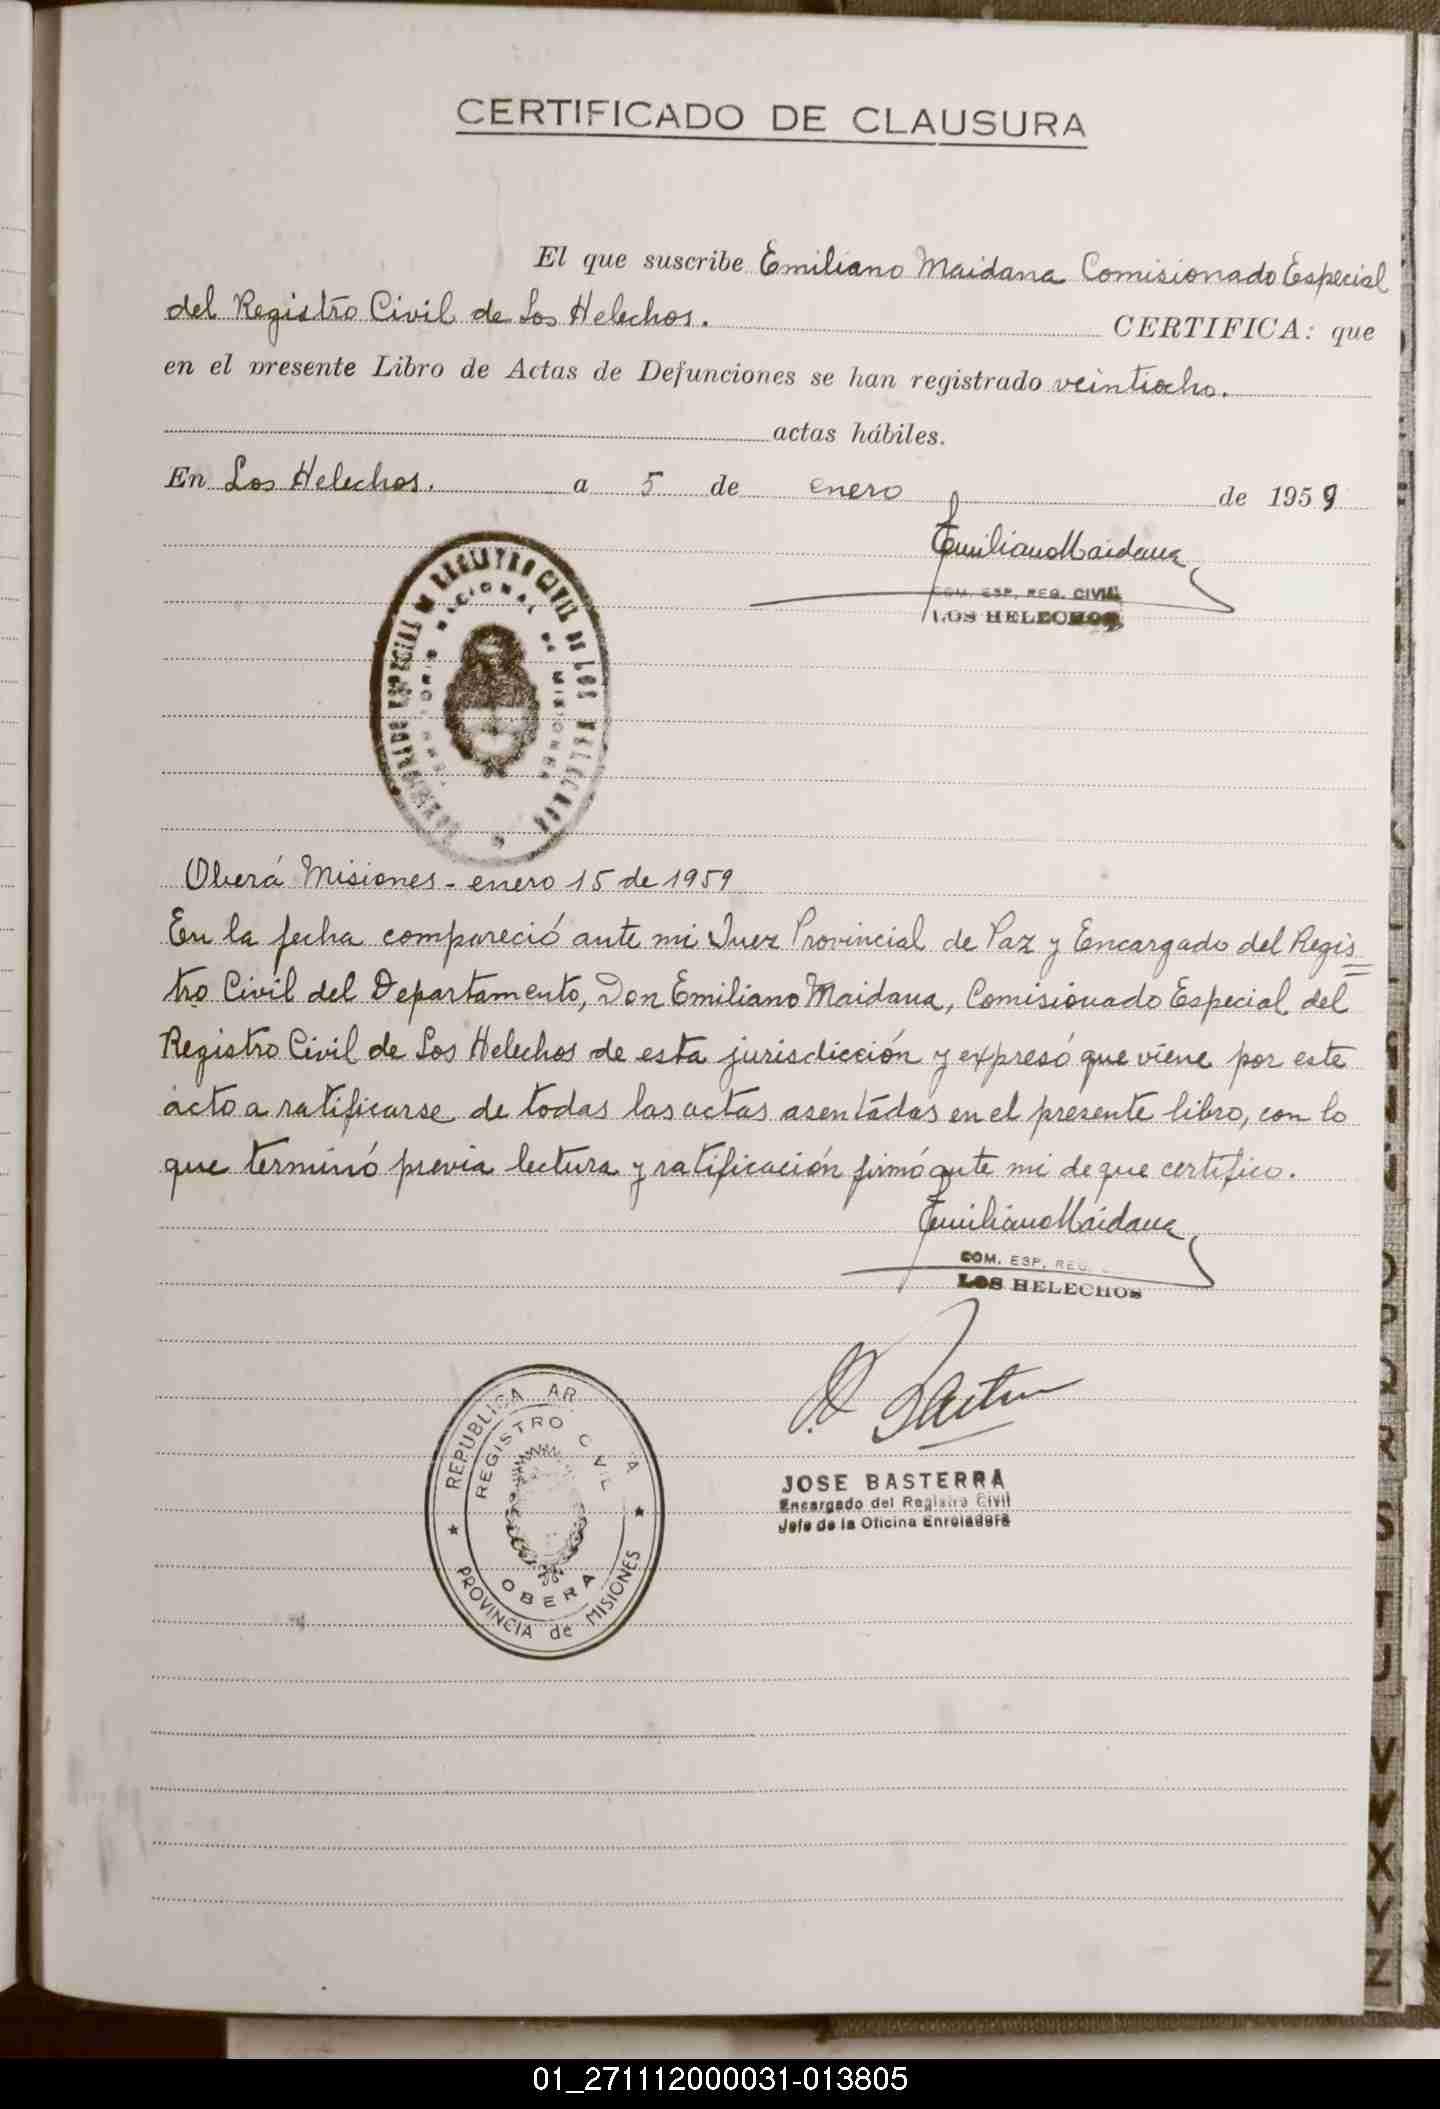 CERTIFICADO DE CLAUSURA
El que suscribe Emiliano Maidana Comisionado Especial
del Registro Civil de Los Helechos. CERTIFICA: que
en el presente Libro de Actas de Defunciones se han registrado veintiocho.
actas hábiles.
En Los Helechos. a 5 de enero de 1959
Emiliano Maidana
COM. ESP. REG. CIVIL
LOS HELECHOS
ESPECIAL DE REGISTRO CIVIL DE LOS HELECHOS
NACIONAL DE MISIONES
Oberá Misiones - enero 15 de 1959
En la fecha compareció ante mi Juez Provincial de Paz y Encargado del Regis
tro Civil del Departamento, Don Emiliano Maidana, Comisionado Especial del
Registro Civil de Los Helechos de esta jurisdicción y expresó que viene por este
acto a ratificarse de todas las actas asentadas en el presente libro, con lo
que terminó previa lectura y ratificación firmó ante mi de que certifico.
Emiliano Maidana
COM. ESP. REG.
LOS HELECHOS
REPUBLICA AR A
REGISTRO CIVIL
OBERA
PROVINCIA de MISIONES
JOSE BASTERRA
Encargado del Registro Civil
Jefe de la Oficina Enroladora
O
P
Q
R
S
T
U
V
W
X
Y
Z
01_271112000031-013805